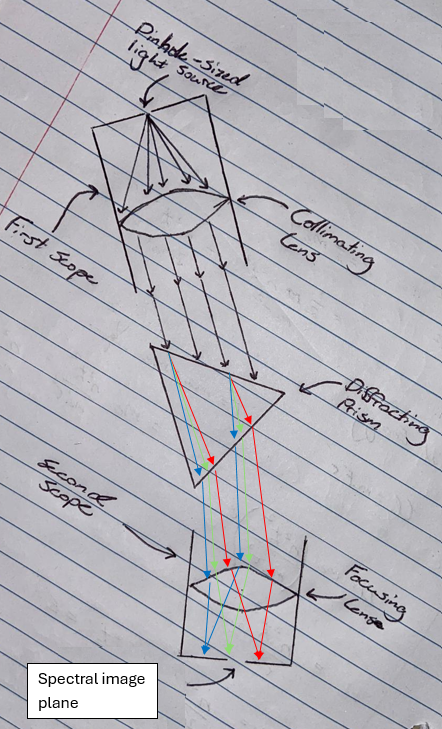 Pinhole-sized
light source
First Scope
Collimating
Lens
Diffracting
Prism
Second
Scope
Focusing
Lense
Spectral image
plane